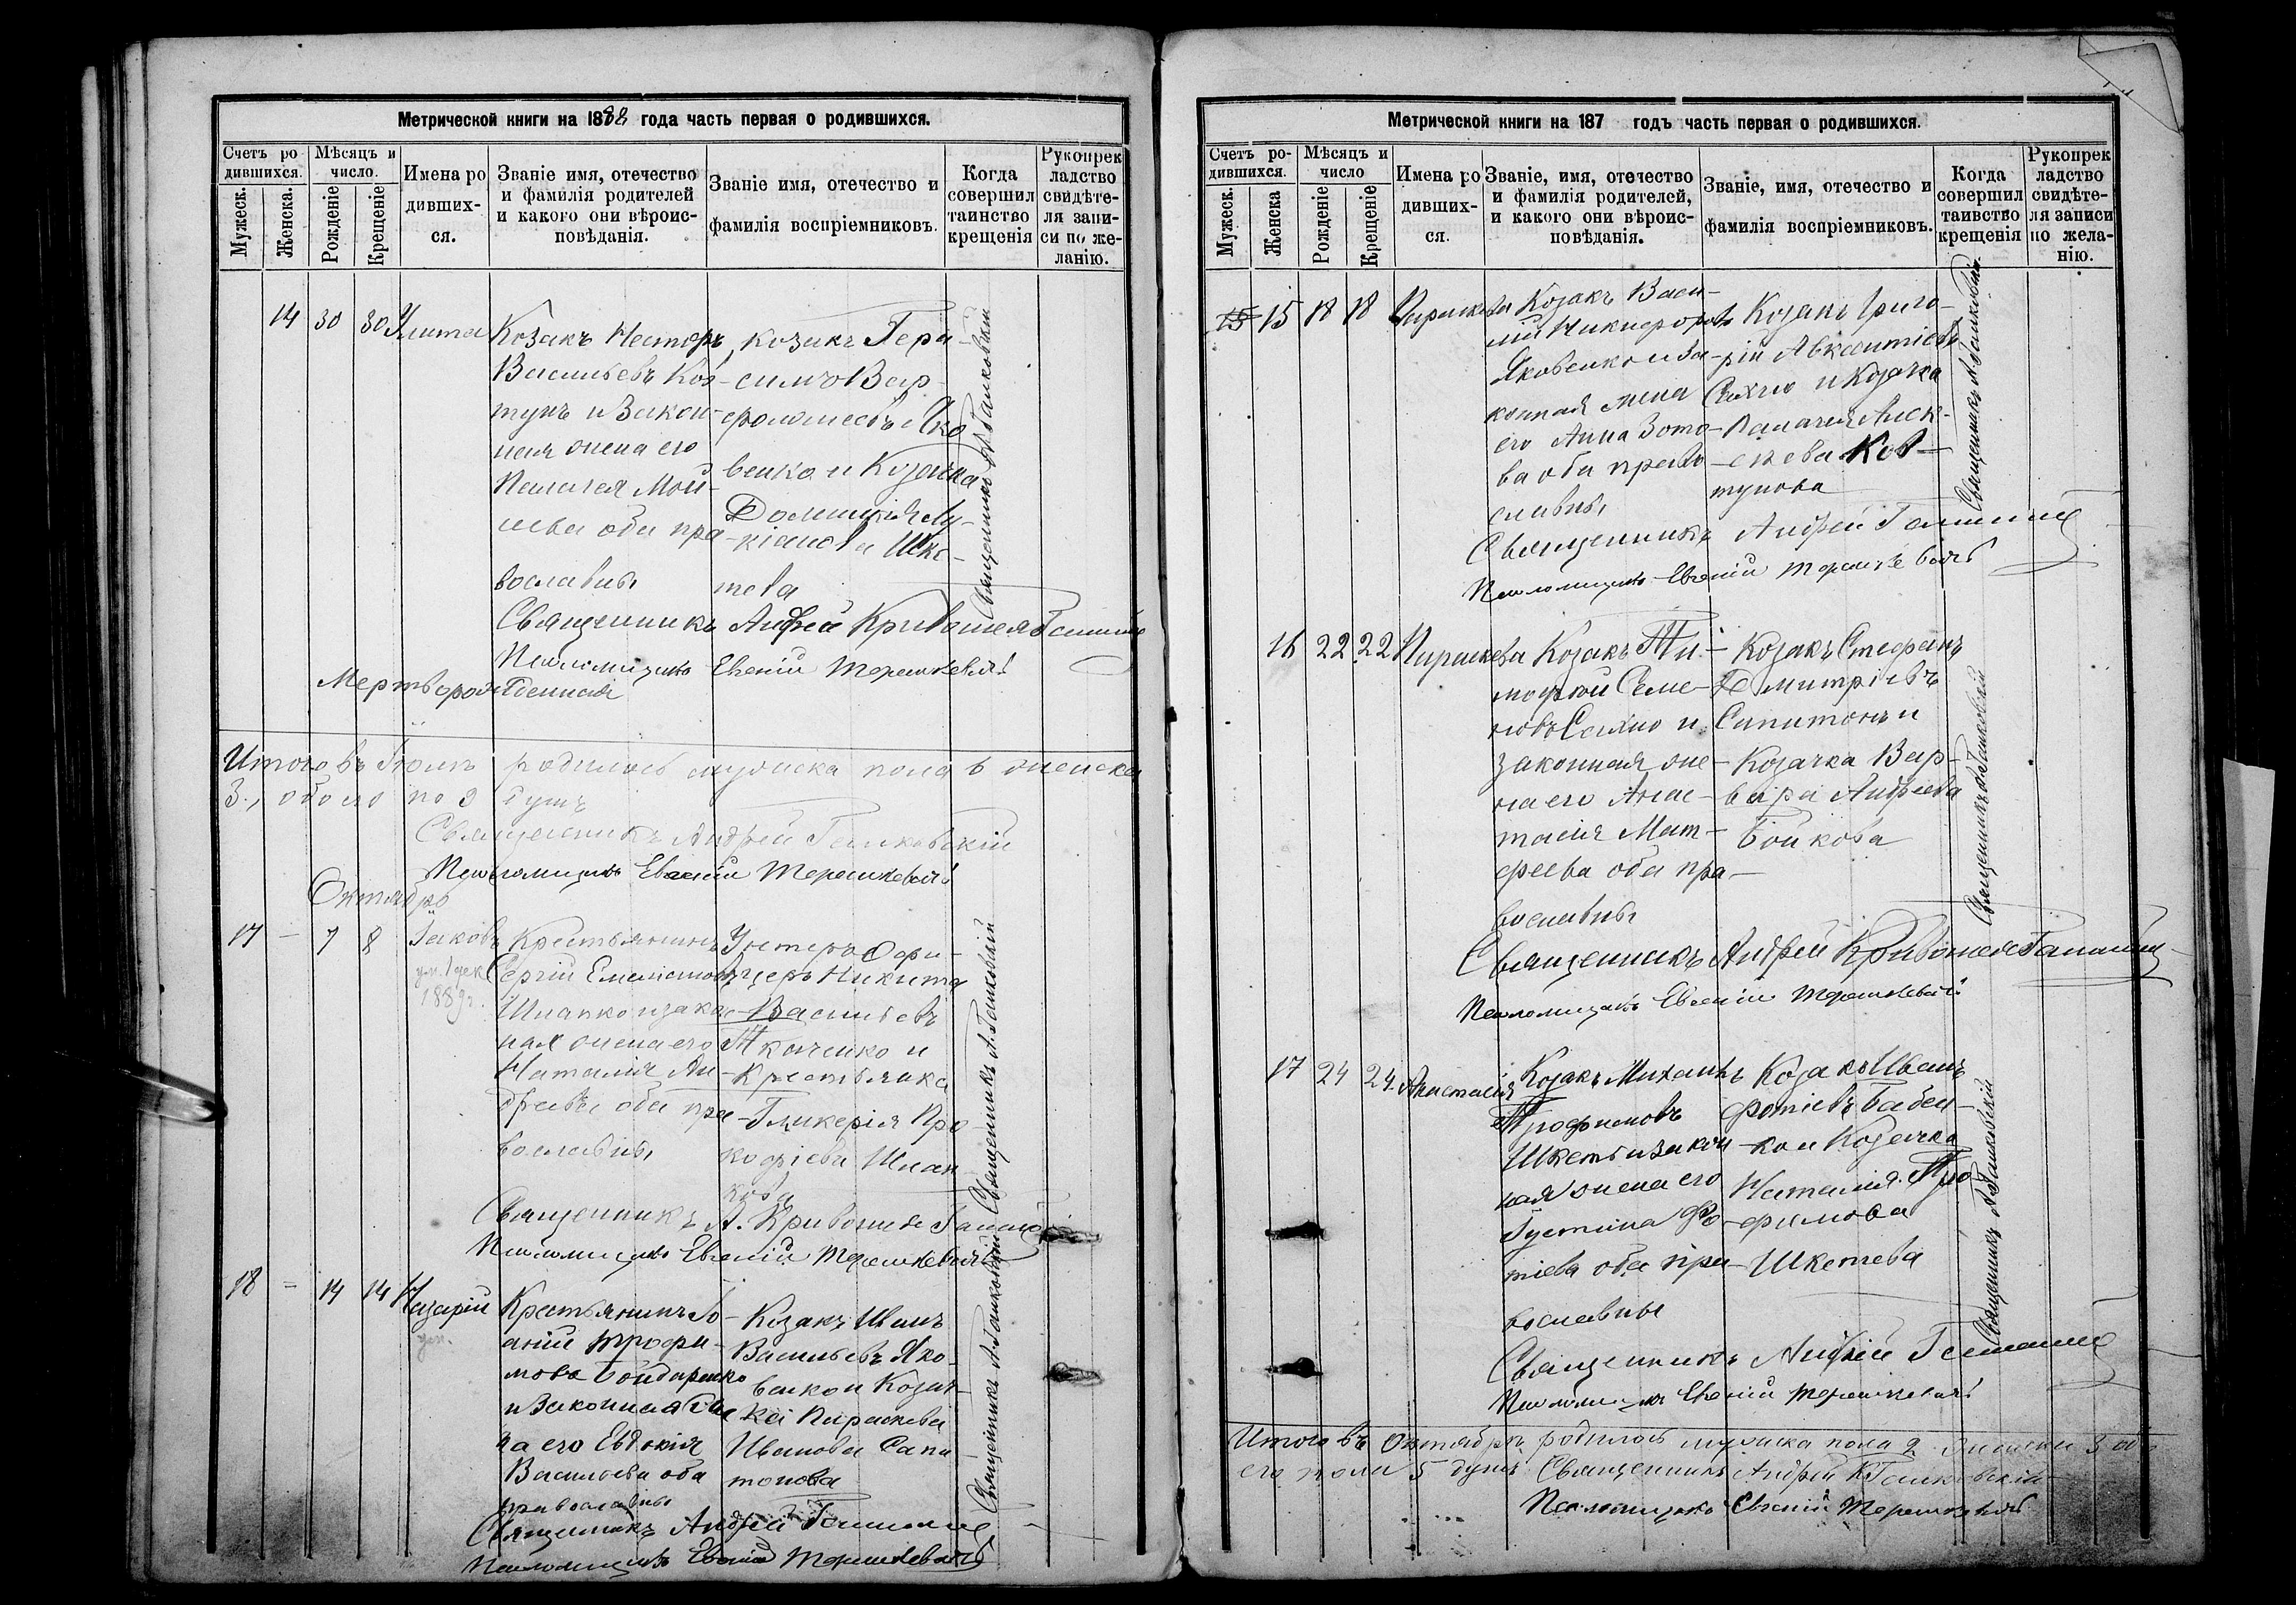 Метрической книги на 1888 года часть первая о родившихся.
Счетъ ро
дившихся.
Мужеск.
Женска.
Мѣсяцъ и
число.
Рожденіе
Крещеніе
Имена ро
дивших-
ся.
Званіе имя, отечество
и фамилія родителей
и какого они вѣроис-
повѣданія.
Званіе имя, отечество и
фамилія воспріемниковъ.
Когда
совершил
таинство
крещенія
Рукопрек
ладство
свидѣте-
ля запи-
си по же-
ланію.
14 30 30 Улита
Козакъ Несторъ
Васильевъ Ков-
тунъ и закон-
ная жена его
Пелагея Мои-
сеева оба пра-
вославны
козакъ Гера-
симъ Вар-
фоломеевъ Яко
венко и Козачка
Домникія Лу-
кіанова Шке-
тева
Священникъ А. Галковскій
Священникъ Андрей Кривошея Галков
Псаломщикъ Евгеній Терешкевичъ
Мертворожденная
Итого въ родилось мужска пола 6 женска
3, обоего по 9 душъ
Священникъ Андрей Галковскій
Псаломщикъ Евгеній Терешкевичъ
Октябрь
17 - 7 8 Іаковъ
ум. 1 дек
1889г.
Крестьянинъ
Сергій Емеліановъ
Шпапко и закон-
ная жена его
Наталія Ан-
дреева оба пра-
вославны
Унтеръ Офи-
церъ Никита
Васильевъ
Ткаченко и
Крестьянка
Гликерія Про
кофіева Шпап
кова
Священникъ А. Галковскій
Священникъ А. Кривошея Галков
Псаломщикъ Евгеній Терешкевичъ
18 - 14 14 Назарій
ум.
Крестьянинъ Іо-
аній Трофи-
мовъ Бондаренко
и законная же
на его Евдокія
Васильева оба
православны
Козакъ Иванъ
Васильевъ Яко-
венко и Козач-
ка Параскева
Иванова Сапи-
тонова
Священникъ А. Галковскій
Священникъ Андрей Галков
Псаломщикъ Евгеній Терешкевичъ
Метрической книги на 187 годъ часть первая о родившихся.
Счетъ ро-
дившихся.
Мужеск.
Женска
Мѣсяцъ и
число
Рожденіе
Крещеніе
Имена ро
дивших-
ся.
Званіе, имя, отечество
и фамилія родителей,
и какого они вѣроис-
повѣданія.
Званіе, имя, отечество и
фамилія воспріемниковъ.
Когда
совершил
таивство
крещенія
Рукопрек
ладство
свидѣте-
ля записи
по жела-
нію.
15 15 18 18 Параскева
Козакъ Васи-
лій Никифоровъ
Яковенко и за-
конная жена
его Анна Зото-
ва оба право-
славны
Козакъ Григо-
рій Авксентіевъ
Сахно и Козачка
Палагея Алек-
сеева Ков-
тунова
Священникъ А. Галковскій
Священникъ Андрей Галков
Псаломщикъ Евгеній Терешкевичъ
16 22 22 Параскева
Козакъ Ти-
мофей Семе-
новъ Сахно и
законная же-
на его Анас-
тасія Мат-
феева оба пра-
вославны
Козакъ Стефанъ
Димитріевъ
Сапитонъ и
Козачка Вар-
вара Андреева
Бойкова
Священникъ А. Галковскій
Священникъ Андрей Кривошея Галков
Псаломщикъ Евгеній Терешкевичъ
17 24 24 Анастасія
Козакъ Михаилъ
Трофимовъ
Шкеть и закон-
ная жена его
Іустина Фо-
тіева оба пра-
вославны
Козакъ Иванъ
Фотіевъ Бабен-
ко и Козачка
Наталія Тро-
фимова
Шкетева
Священникъ А. Галковскій
Священникъ Андрей Галков
Псаломщикъ Евгеній Терешкевичъ
Итого въ Октябрѣ родилось мужска пола 2 женска 3 обо
его пола 5 душъ Священникъ Андрей К Галковскій
Псаломщикъ Евгеній Терешкевичъ